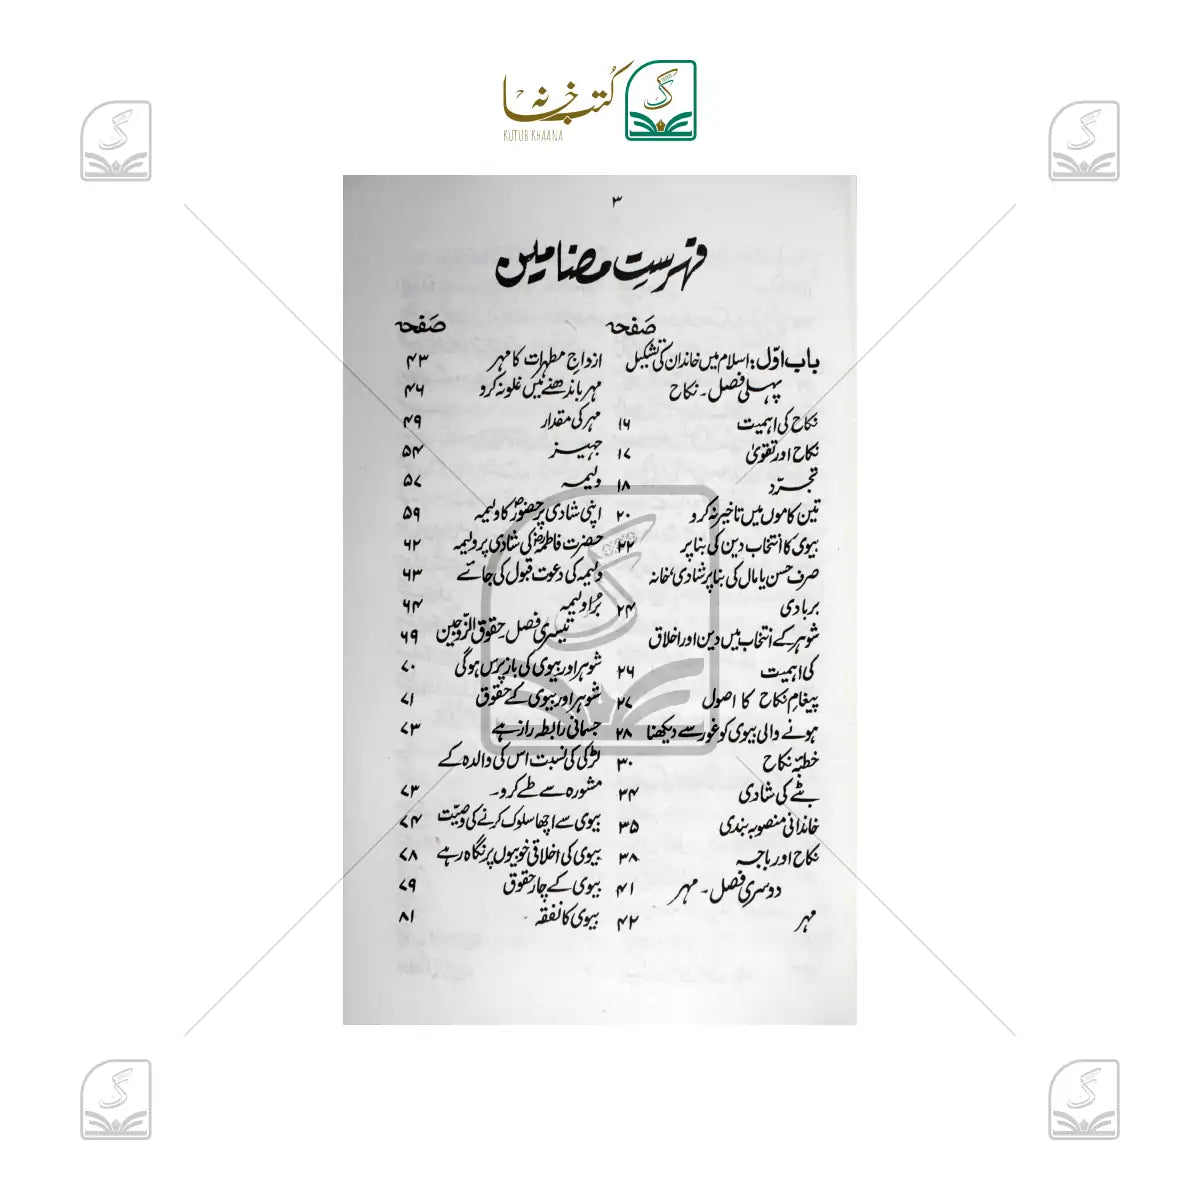 کتب خانہ
KUTUB KHAANA
۳
فہرست مضامین
صفحہ
باب اوّل: اسلام میں خاندان کی تشکیل
پہلی فصل۔ نکاح
نکاح کی اہمیت ۱۶
نکاح اور تقویٰ ۱۷
تجرّد ۱۸
تین کاموں میں تاخیر نہ کرو ۲۰
بیوی کا انتخاب دین کی بنا پر ۲۲
صرف حسن یا مال کی بنا پر شادی خانہ
بربادی ۲۴
شوہر کے انتخاب میں دین اور اخلاق
کی اہمیت ۲۶
پیغام نکاح کا اصول ۲۷
ہونے والی بیوی کو غور سے دیکھنا ۲۸
خطبۂ نکاح ۳۰
بٹے کی شادی ۳۴
خاندانی منصوبہ بندی ۳۵
نکاح اور باجہ ۳۸
دوسری فصل۔ مہر ۴۱
مہر ۴۲
صفحہ
ازواج مطہرات کا مہر ۴۳
مہر باندھنے میں غلو نہ کرو ۴۶
مہر کی مقدار ۴۹
جہیز ۵۴
ولیمہ ۵۷
اپنی شادی پر حضورؐ کا ولیمہ ۵۹
حضرت فاطمہؓ کی شادی پر ولیمہ ۶۲
ولیمہ کی دعوت قبول کی جائے ۶۳
بُرا ولیمہ ۶۴
تیسری فصل۔ حقوق الزّوجین ۶۹
شوہر اور بیوی کی باز پرس ہوگی ۷۰
شوہر اور بیوی کے حقوق ۷۱
جسمانی رابطہ راز ہے ۷۳
لڑکی کی نسبت اس کی والدہ کے
مشورہ سے طے کرو۔ ۷۳
بیوی سے اچھا سلوک کرنے کی وصیّت ۷۴
بیوی کی اخلاقی خوبیوں پر نگاہ رہے ۷۸
بیوی کے چار حقوق ۷۹
بیوی کا نفقہ ۸۱